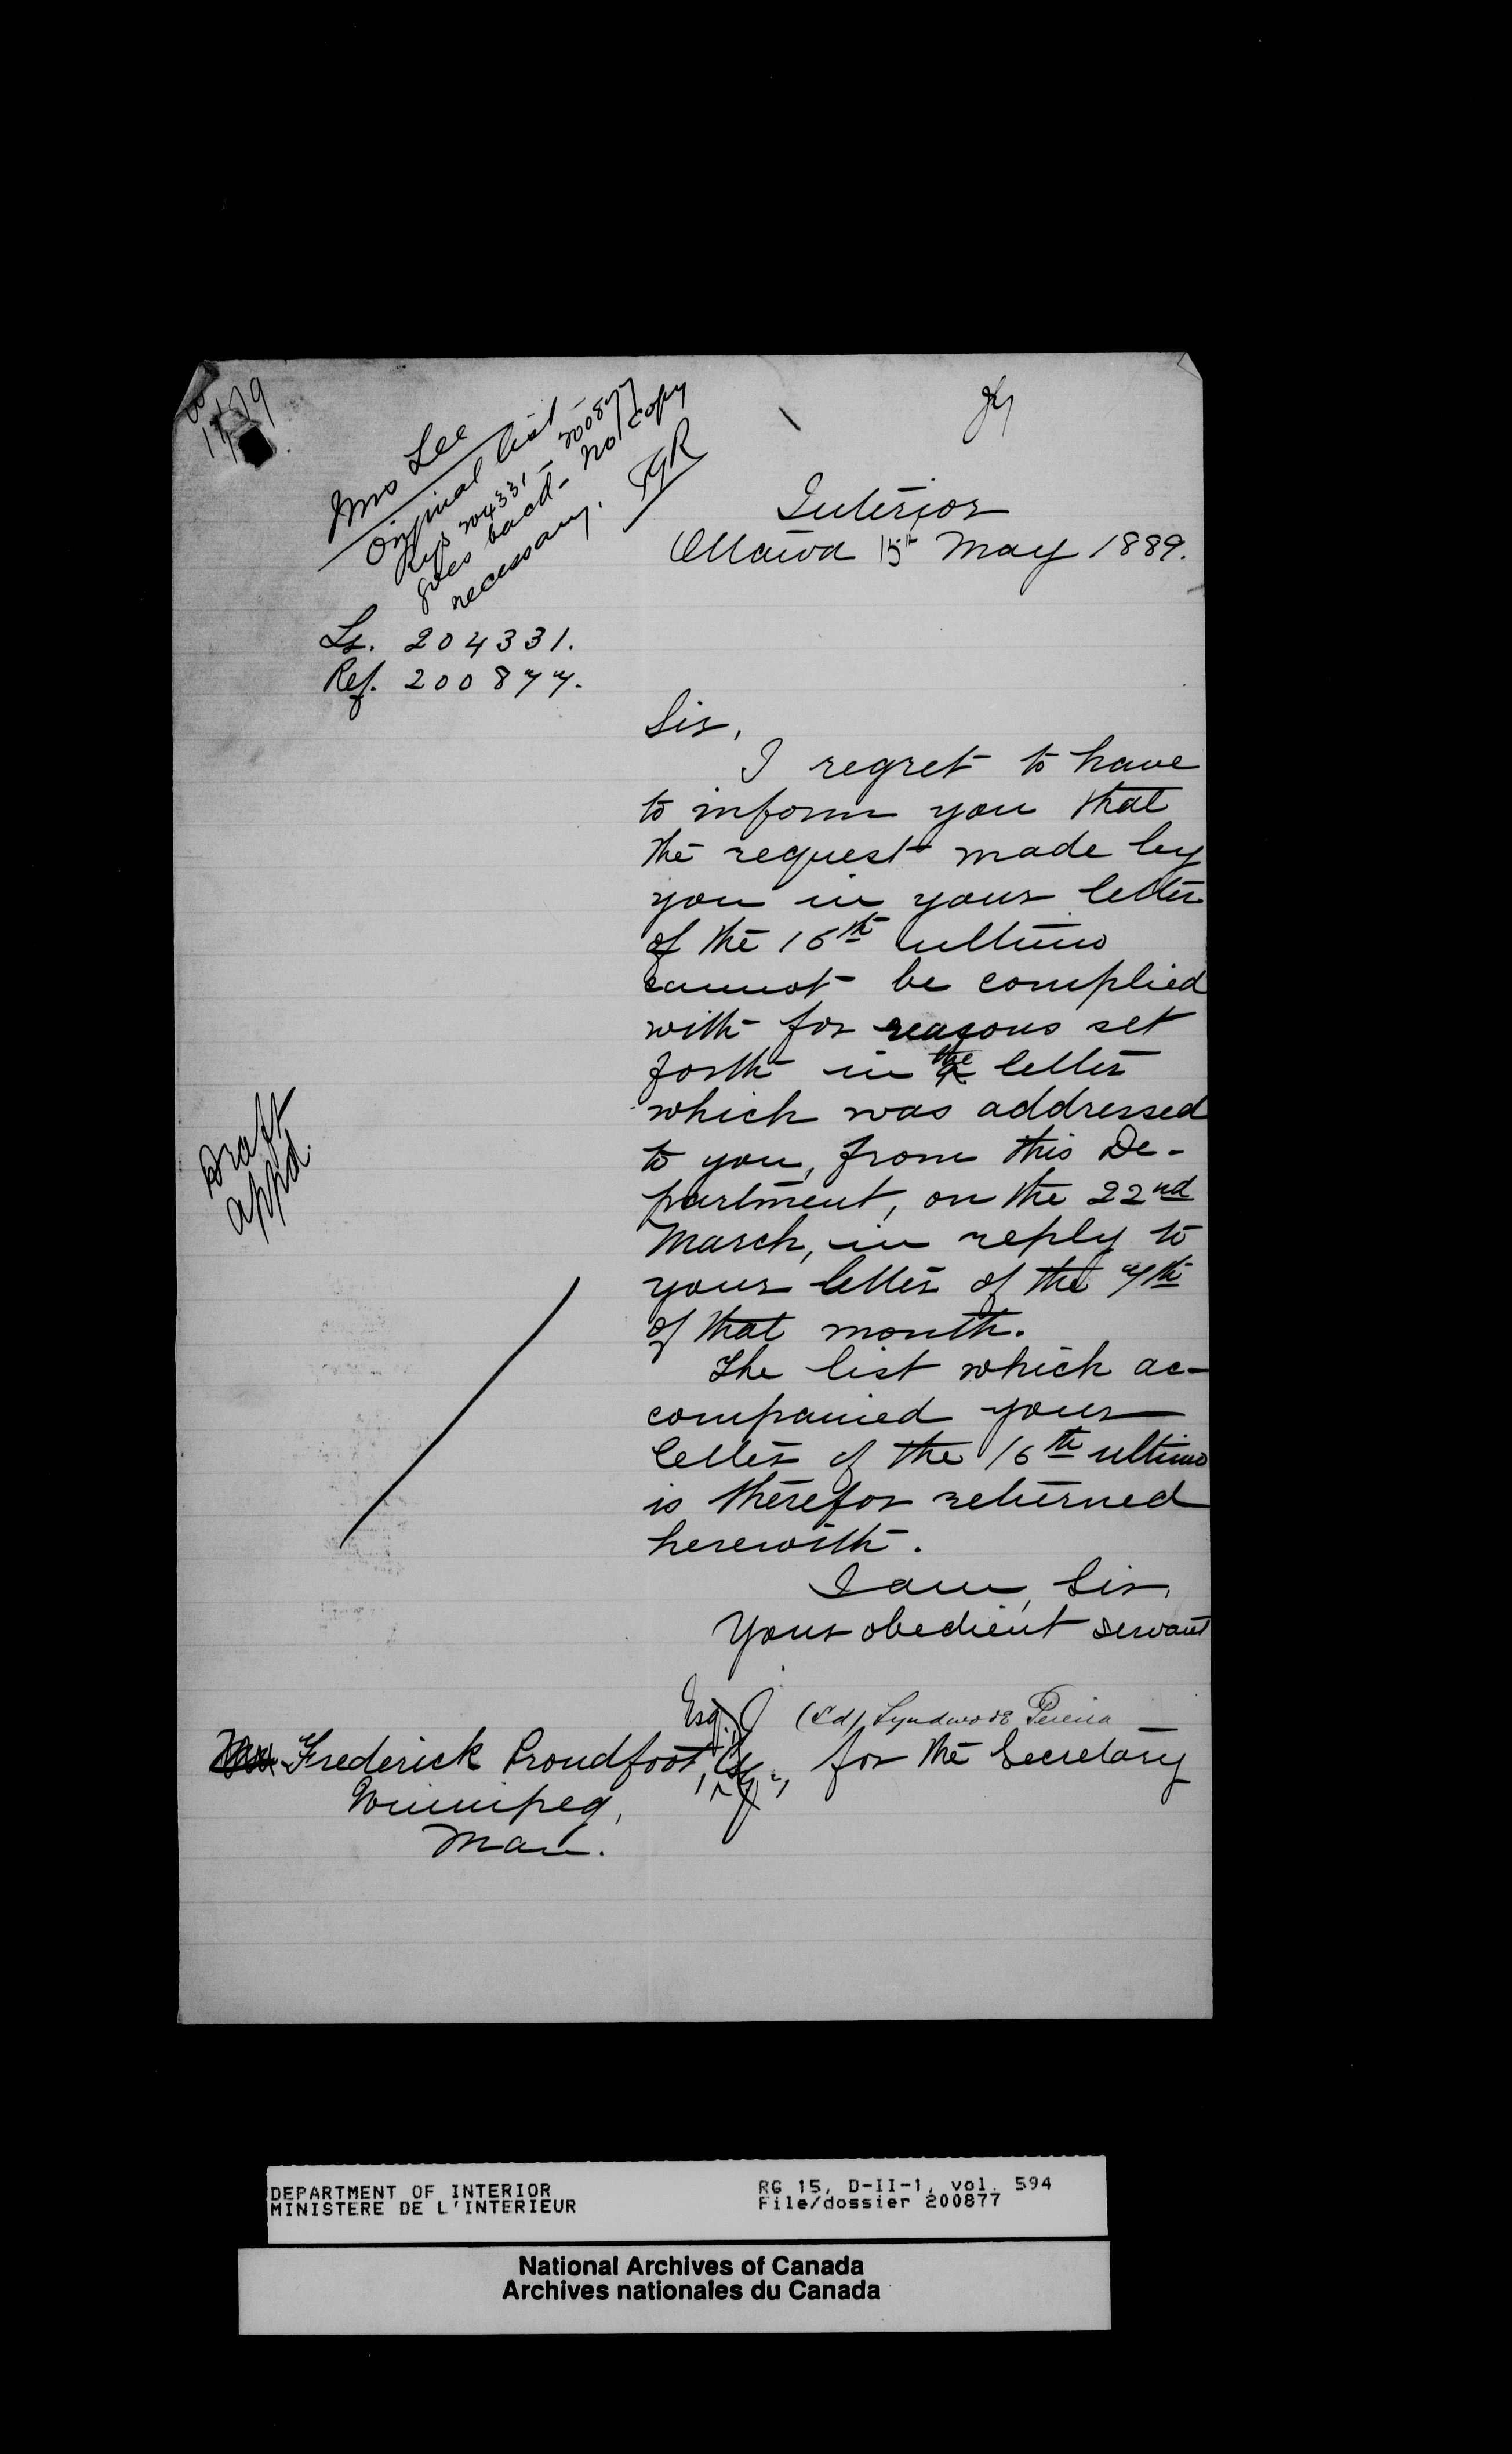 Miss Lee
Original list
Refs 204331 - 200877
goes back - no copy
necessary.
Interior
Ottawa 15th May 1889.
Ls. 204331.
Ref. 200877.
Sir,
I regret to have
to inform you that
the request made by
you in your letter
of the 16th ultimo
cannot be complied
with for reasons set
forth in the letter
which was addressed
to you, from this De-
partment, on the 22nd
March, in reply to
your letter of the 7th
of that month.
The list which ac-
companied your
letter of the 16th ultimo
is therefor returned
herewith.
I am, Sir,
Your obedient servant
(Sd) Lyndwode Pereira
for the Secretary
Frederick Proudfoot, Esq.,
Winnipeg,
Man.
Draft
appd.
DEPARTMENT OF INTERIOR
MINISTERE DE L'INTERIEUR
RG 15, D-II-1, vol. 594
File/dossier 200877
National Archives of Canada
Archives nationales du Canada